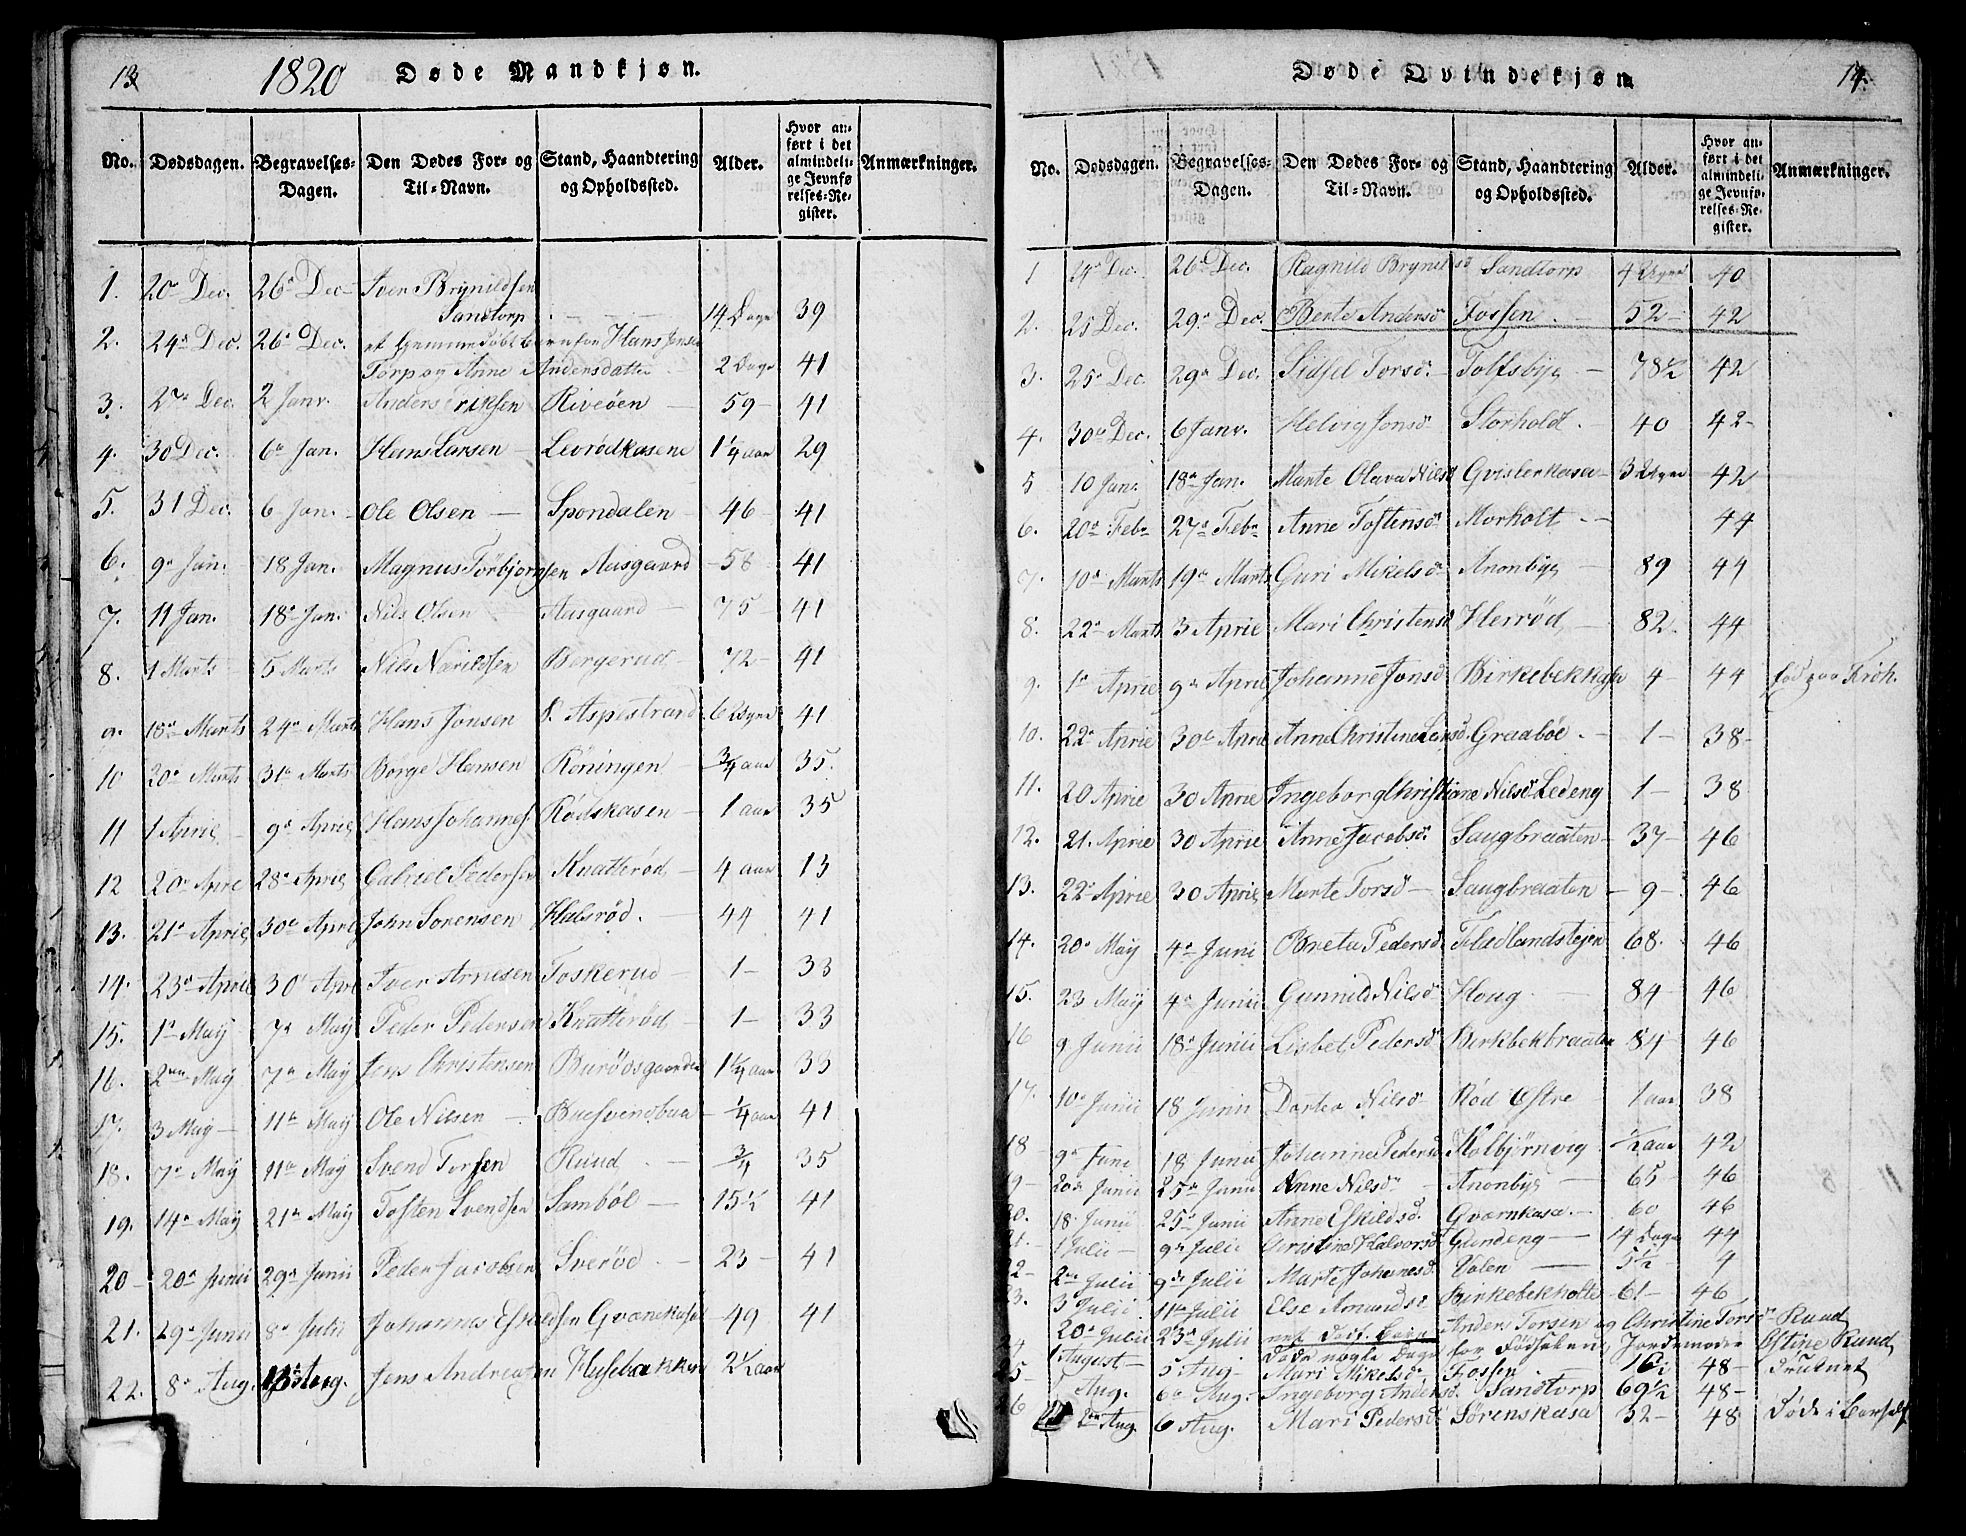 13. 1820 Døde Mandkjøn.
No. Dødsdagen. Begravelses-Dagen. Den Dødes For- og Til-Navn. Stand, Haandtering og Opholdssted. Alder. Hvor anført i det almindelige Jevnførelses-Register. Anmærkninger.
1. 20 Dec. 26 Dec. Iver Brynildsen
Sandtorp 14 Dage 39
2. 24 Dec. 26 Dec. et hjemmedøbt barn Hans Jensen
Torp og Anne Andersdatter 2 Dage 41
3. 27 Dec. 2 Janr. Anders Eriksen Kiveöen 59 41
4. 30 Dec. 6 Jan. Hans Larsen Levrødkasene 1 1/4 aar 29
5. 31 Dec. 6 Jan. Ole Olsen Spondalen 46 41
6. 9 Jan. 18 Jan. Magnus Törbjørnsen Aasgaard 58 41
7. 11 Jan. 18 Jan. Nils Olsen Aasgaard 75 41
8. 1 Marts 5 Marts Nils Narildsen Bergerud 72 41
9. 18 Marts 24 Marts Hans Jonsen Aspestrand 6 Uger 41
10 20 Marts 31 Marts Borge Hansen Röningen 3/4 aar 35.
11 1 April 9 April Hans Johannes Rødskasen 1 aar 35
12 20 April 28 April Gabriel Pedersen Knatterød 4 aar 13
13. 21 April 30 April John Sorensen Habsrød. 44 41
14. 23 April 30 April Iver Arnesen Toskerud 1 33
15. 1 May 7 May Peder Pedersen Knatterød 1 33
16. 2 May 7 May Jens Christensen Burødsgaarden 1 1/4 aar 33
17. 3 May 11 May Ole Nilsen 1/4 aar 41
18. 7 May 11 May Svend Torsen Ruud 3/4 35
19. 14 May 21 May Tosten Svendsen Sambøl 15 1/2 41
20 20 Junii 29 Junii Peder Jacobsen Sverød 23 41
21. 29 Junii 8 Julii Johannes Eskildsen 49 41
22. 8 Aug. Aug. Jens Andreasen Husebakken 2 1/2 aar
Døde Qvindekjøn 14.
No. Dødsdagen. Begravelses-Dagen. Den Dødes For- og Til-Navn. Stand, Haandtering og Opholdssted. Alder. Hvor anført i det almindelige Jevnførelses-Register. Anmærkninger.
1 4 Dec. 26 Dec. Ragnild Brynels Sandtorp 4 Uger 40
2. 25 Dec. 29 Dec. Berte Andersd Fossen 52 42
3. 25 Dec. 29 Dec. Sidsel Torsd Tolfsbye 78 1/2 42
4. 30 Dec. 6 Janr. Helvig Jonsd Storholt 40 42
5 10 Jan. 18 Jan. Marte Olava Nilsd Gvislerkasa 3 Uger 42
6. 20 Feb 27 Feb Anne Tostensd Morholt 44
7. 10 Marts 19 Marts Guri Mikelsd Anonbye 89 44
8. 22 Marts 3 April Mari Christensd Herrød 82 44
9. 1 April 9 April Johanne Jonsd Birkebekkasa 4 44
10. 22 April 30 April Anne Christine Graabøe 1 38
11. 20 April 30 April Ingeborg Christiane Nilsd Ledeng 1 38
12. 21. April 30 April Anne Jacobsd. Saugbraaten 37 46
13. 22 April 30 April Marte Torsd Saugbraaten 9 46
14. 20 May 4 Juni Breta Pedersd Flædlandstejen 68. 46
15. 23 May 4 Junii Gunnild Nilsd Houg 84 46
16 9 Junii 18 Junii Lisbet Pedersd Birkbekbraaten 84 46
17. 10 Junii 18 Junii Dortea Nilsd Rød Østre 1 aar 38
18 9 Juni 18 Junii Johanna Pedersd Kolbjørnvig 1/2 aar 42
19 20 Junii 25 Junii Anne Nilsd Anonbye 65 46
20. 18. Junii 25 Junii Anne Eskildsd. Gvernkasa 60 46
21. 1 Julii 9 Julii Christine Halvorsd Grindeng 14 Dage 44
22 2 Julii 9 Julii Marte Johanesd. Valen 5 1/2 4
23. 3 Julii 11 Julii Else Amunds Birkebekholte 61 46
20 Julii 23 Julii Anders Torsen og Christine Torsd Ruud
døde nogle Dage før Jordemoder Østine Ruud
25 August 5 Aug Mari Mikelsd. Fossen 16 1/2 48 Druknet
Aug. 6 Aug. Ingeborg Andersd. Sandtorp 69 1/2 48
26 2 Aug 6 Aug. Mari Pedersd Sörenskasa 32 48 Døde i Barsels